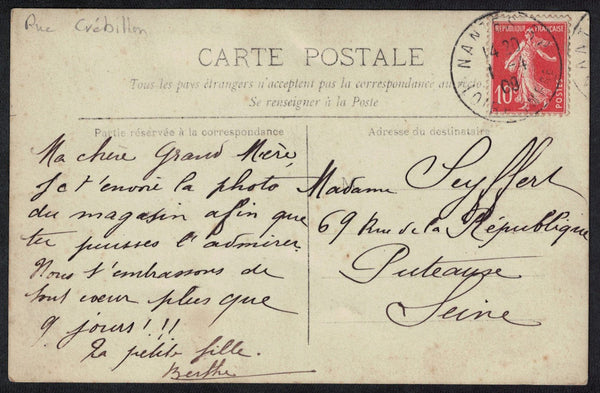 Rue Crébillon
CARTE POSTALE
Tous les pays étrangers n'acceptent pas la correspondance au recto
Se renseigner à la Poste
REPUBLIQUE FRANÇAISE
10
POSTES
NANTES
14 20
09
Partie réservée à la correspondance
Ma chère Grand Mère
Je t'envoie la photo
du magasin afin que
tu puisses l'admirer
Nous t'embrassons de
tout cœur plus que
9 jours!!!
Ta petite fille.
Berthe
Adresse du destinataire
Madame Seyffert
69 Rue de la République
Puteause
Seine